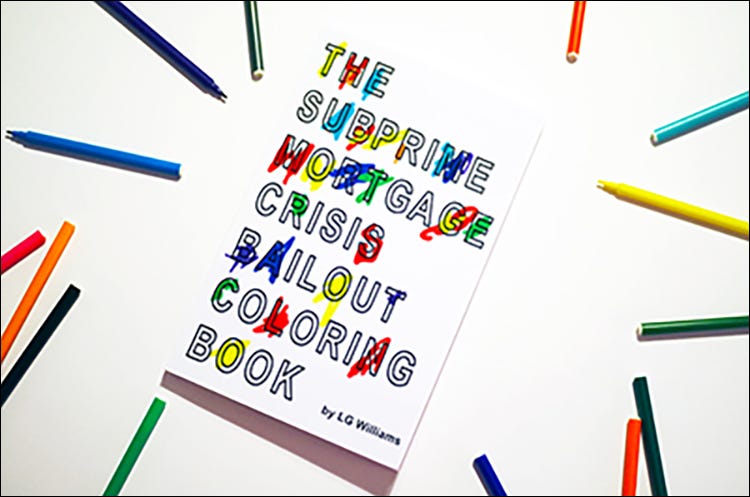 THE
SUBPRIME
MORTGAGE
CRISIS
BAILOUT
COLORING
BOOK
by LG Williams